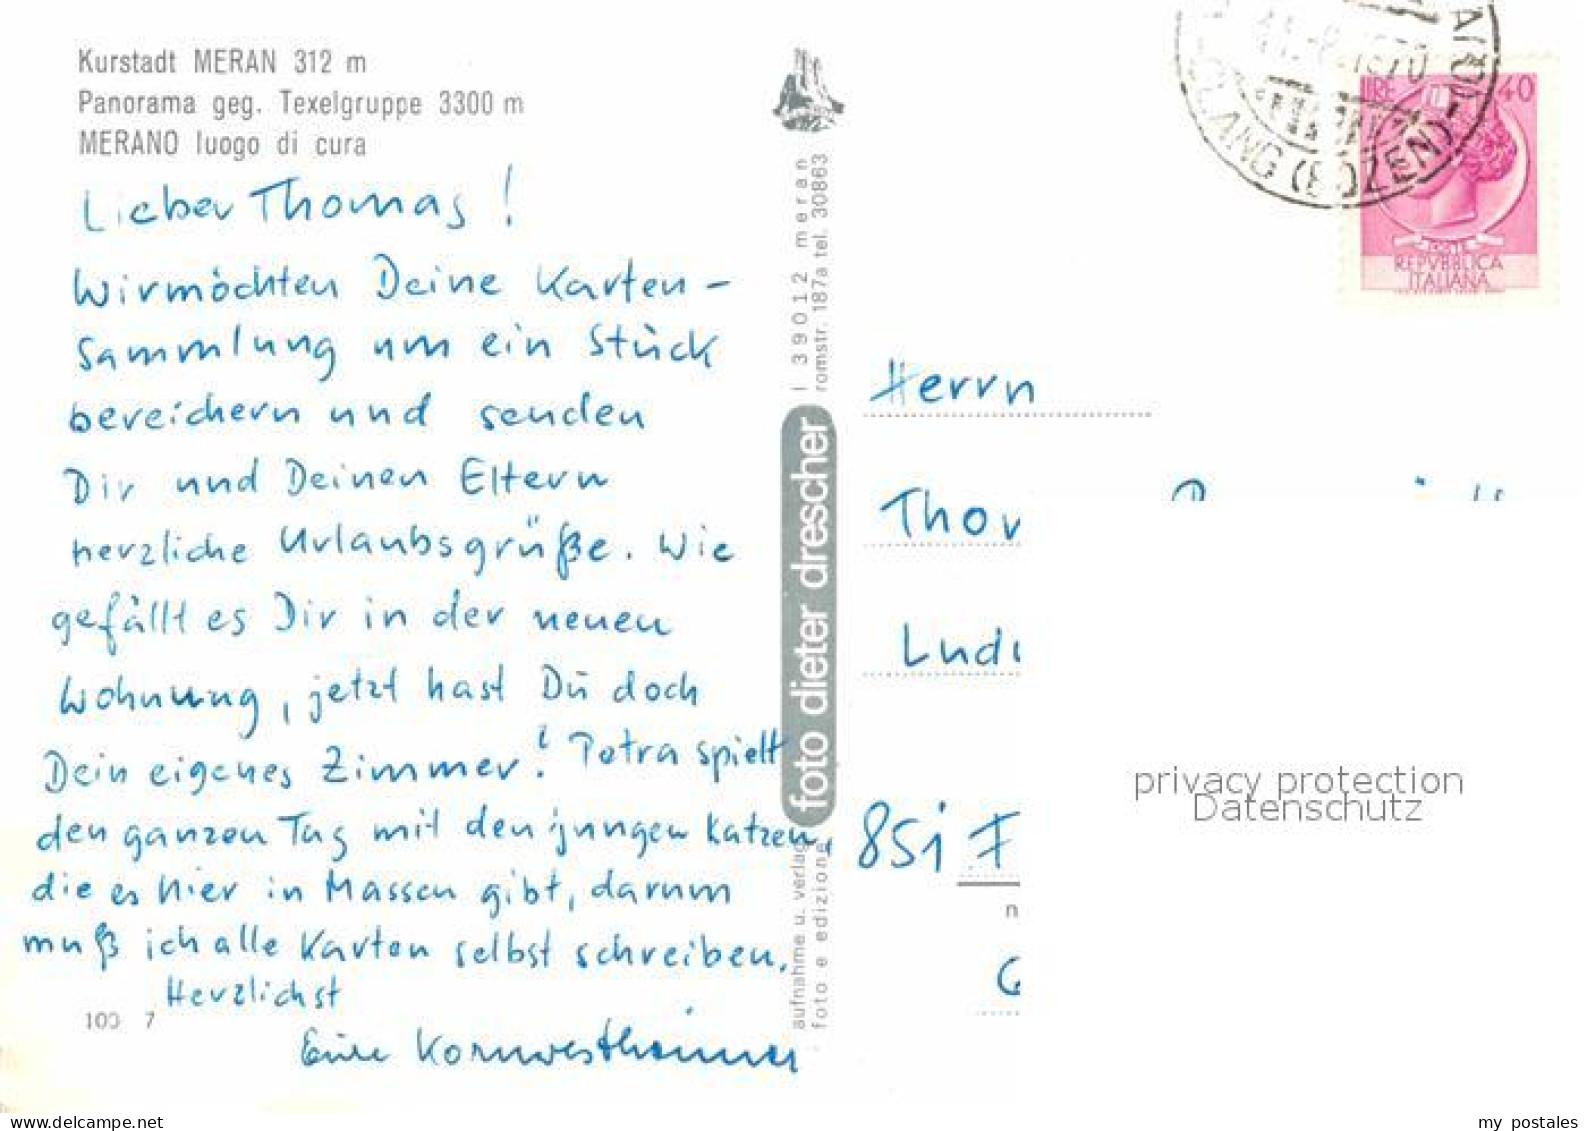 Kurstadt MERAN 312 m
Panorama geg. Texelgruppe 3300 m
MERANO luogo di cura
Lieber Thomas!
Wir möchten Deine Karten-
sammlung um ein Stück
bereichern und senden
Dir und Deinen Eltern
herzliche Urlaubsgrüße. Wie
gefällt es Dir in der neuen
Wohnung, jetzt hast Du doch
Dein eigenes Zimmer? Petra spielt
den ganzen Tag mit den jungen Katzen,
die es hier in Massen gibt, darum
muß ich alle Karten selbst schreiben.
Herzlichst
Eure Kornwestheimer
100 7
I 39012 meran
romstr. 187a tel. 30863
foto dieter drescher
aufnahme u. verlag
foto e edizione
LANG (BOZEN)
LIRE 40
POSTE
REPVBBLICA
ITALIANA
Herrn
Tho
Lud
851 F
n
G
privacy protection
Datenschutz
www.delcampe.net
my_postales